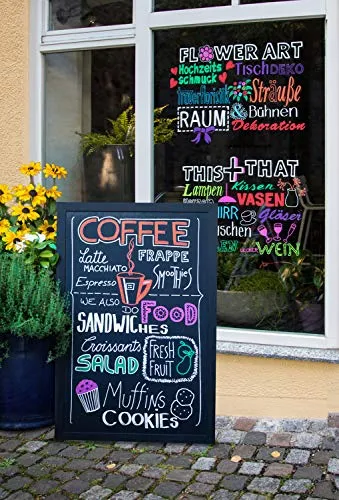 FLOWER ART
Hochzeits TischDEKO
schmuck
Trauerfloristik Sträuße
& Bühnen
RAUM Dekoration
THIS + THAT
Lampen Kissen
VASEN
Gläser
WEIN
COFFEE
Latte FRAPPE
MACCHIATO
Espresso Smoothies
WE ALSO
DO FOOD
SANDWICHES
Croissants
SALAD FRESH
FRUIT
Muffins
COOKIES